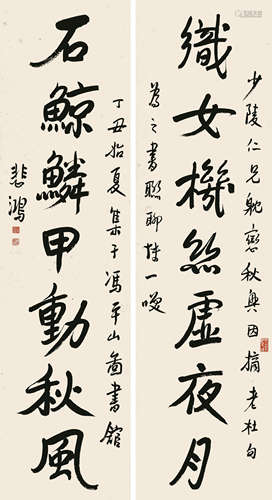 少陵仁兄躭戀秋興因摘老杜句
織女機絲虛夜月
為之書聯聊博一噱
丁丑始夏集于馮平山圖書館
石鯨鱗甲動秋風
悲鴻